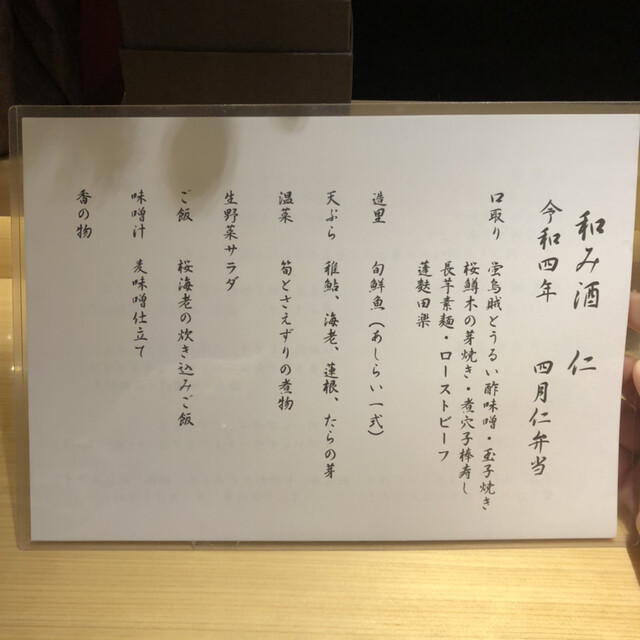 和み酒　仁
令和四年　四月仁弁当
口取り　蛍烏賊とうるい酢味噌・玉子焼き
桜鱒木の芽焼き・煮穴子棒寿し
長芋素麺・ローストビーフ
蓬麩田楽
造里　旬鮮魚（あしらい一式）
天ぷら　稚鮎、海老、蓮根、たらの芽
温菜　筍とさえずりの煮物
生野菜サラダ
ご飯　桜海老の炊き込みご飯
味噌汁　麦味噌仕立て
香の物